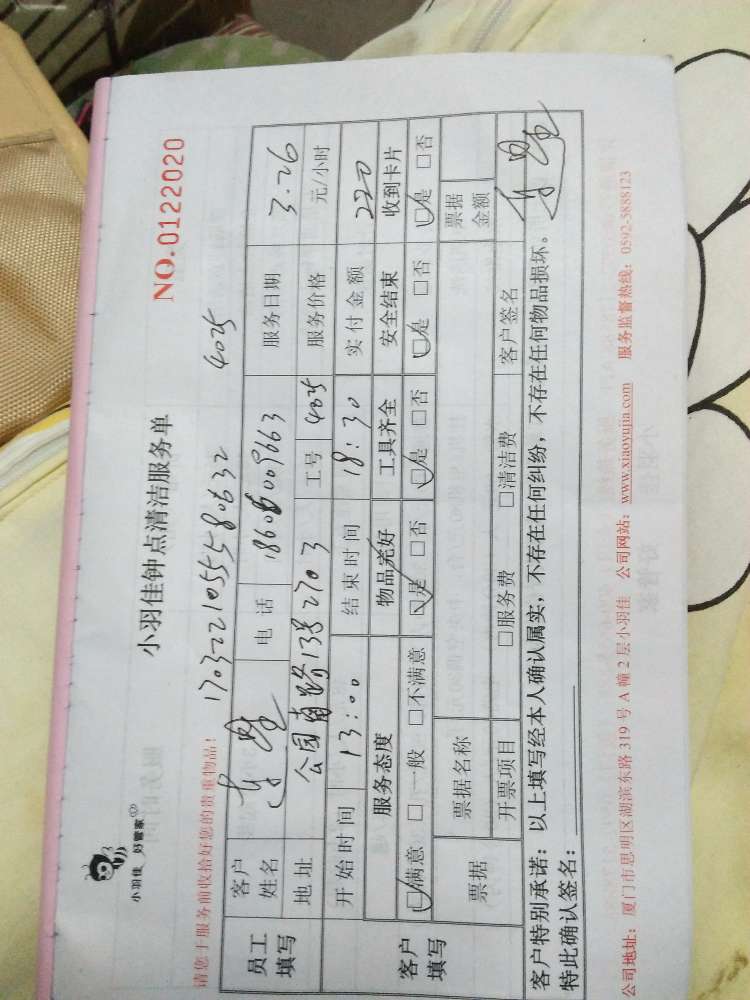 小羽佳 好管家
小羽佳钟点清洁服务单
NO.0122020
请您于服务前收拾好您的贵重物品!
1703221055480632 4025
员工填写 客户姓名 电话 18606009663 服务日期 3.26
地址 公园南路13号2703 工号 4025 服务价格 元/小时
开始时间 13:00 结束时间 18:30 实付金额 220
客户填写 服务态度 物品完好 工具齐全 安全结束 收到卡片
☑满意 □一般 □不满意 ☑是 □否 ☑是 □否 ☑是 □否 ☑是 □否
票据 票据名称 票据金额
开票项目 □服务费 □清洁费 客户签名
客户特别承诺:以上填写经本人确认属实,不存在任何纠纷,不存在任何物品损坏。
特此确认签名:
公司地址:厦门市思明区湖滨东路319号A幢2层小羽佳 公司网站:www.xiaoyujia.com 服务监督热线:0592-5888123